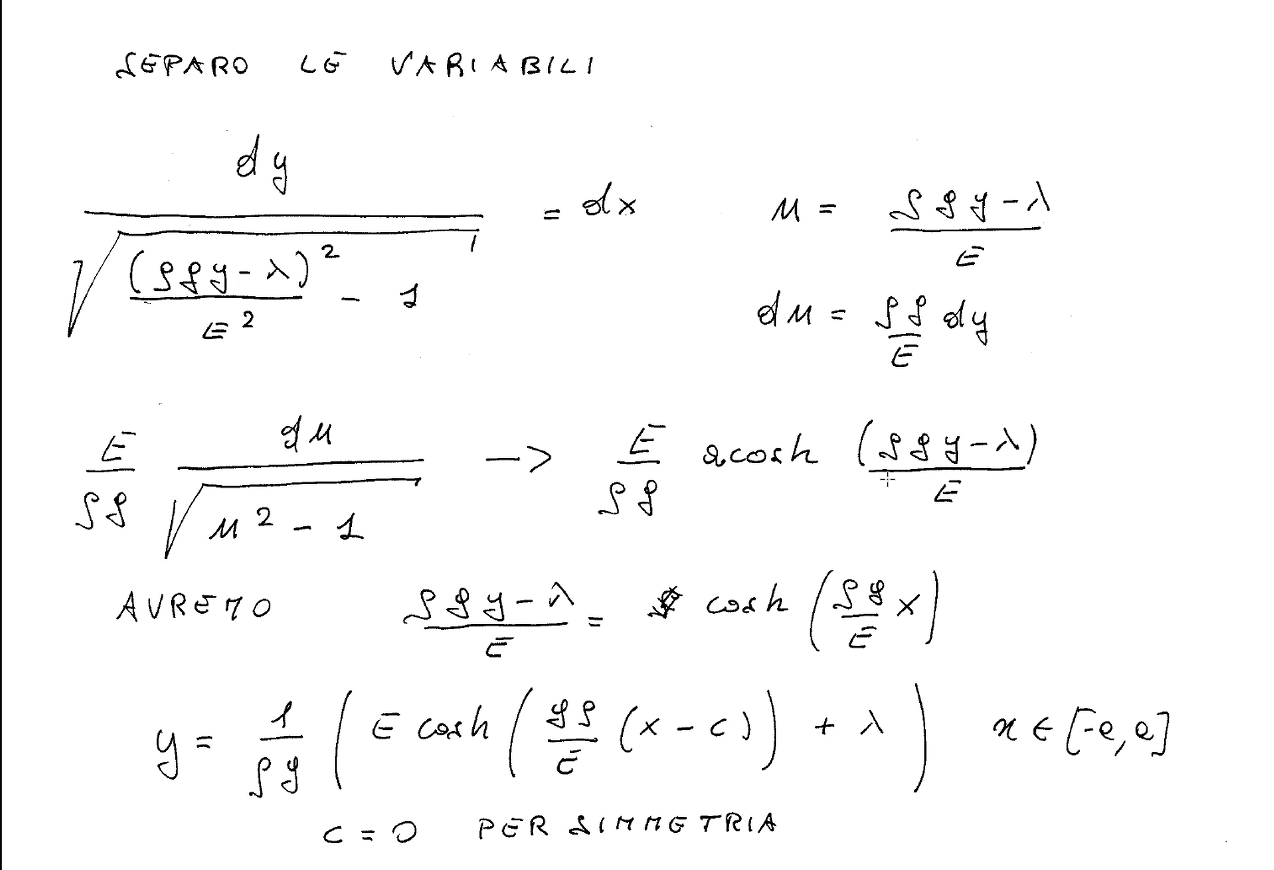 SEPARO LE VARIABILI
dy / √((ρgy-λ)² / E² - 1) = dx    u = (ρgy-λ) / E
du = ρg/E dy
E/ρg du / √(u² - 1) -> E/ρg acosh ((ρgy-λ) / E)
AVREMO (ρgy-λ) / E = cosh (ρg/E x)
y = 1/ρg (E cosh (gρ/E (x-c)) + λ)    x ∈ [-a, a]
c = 0 PER SIMMETRIA